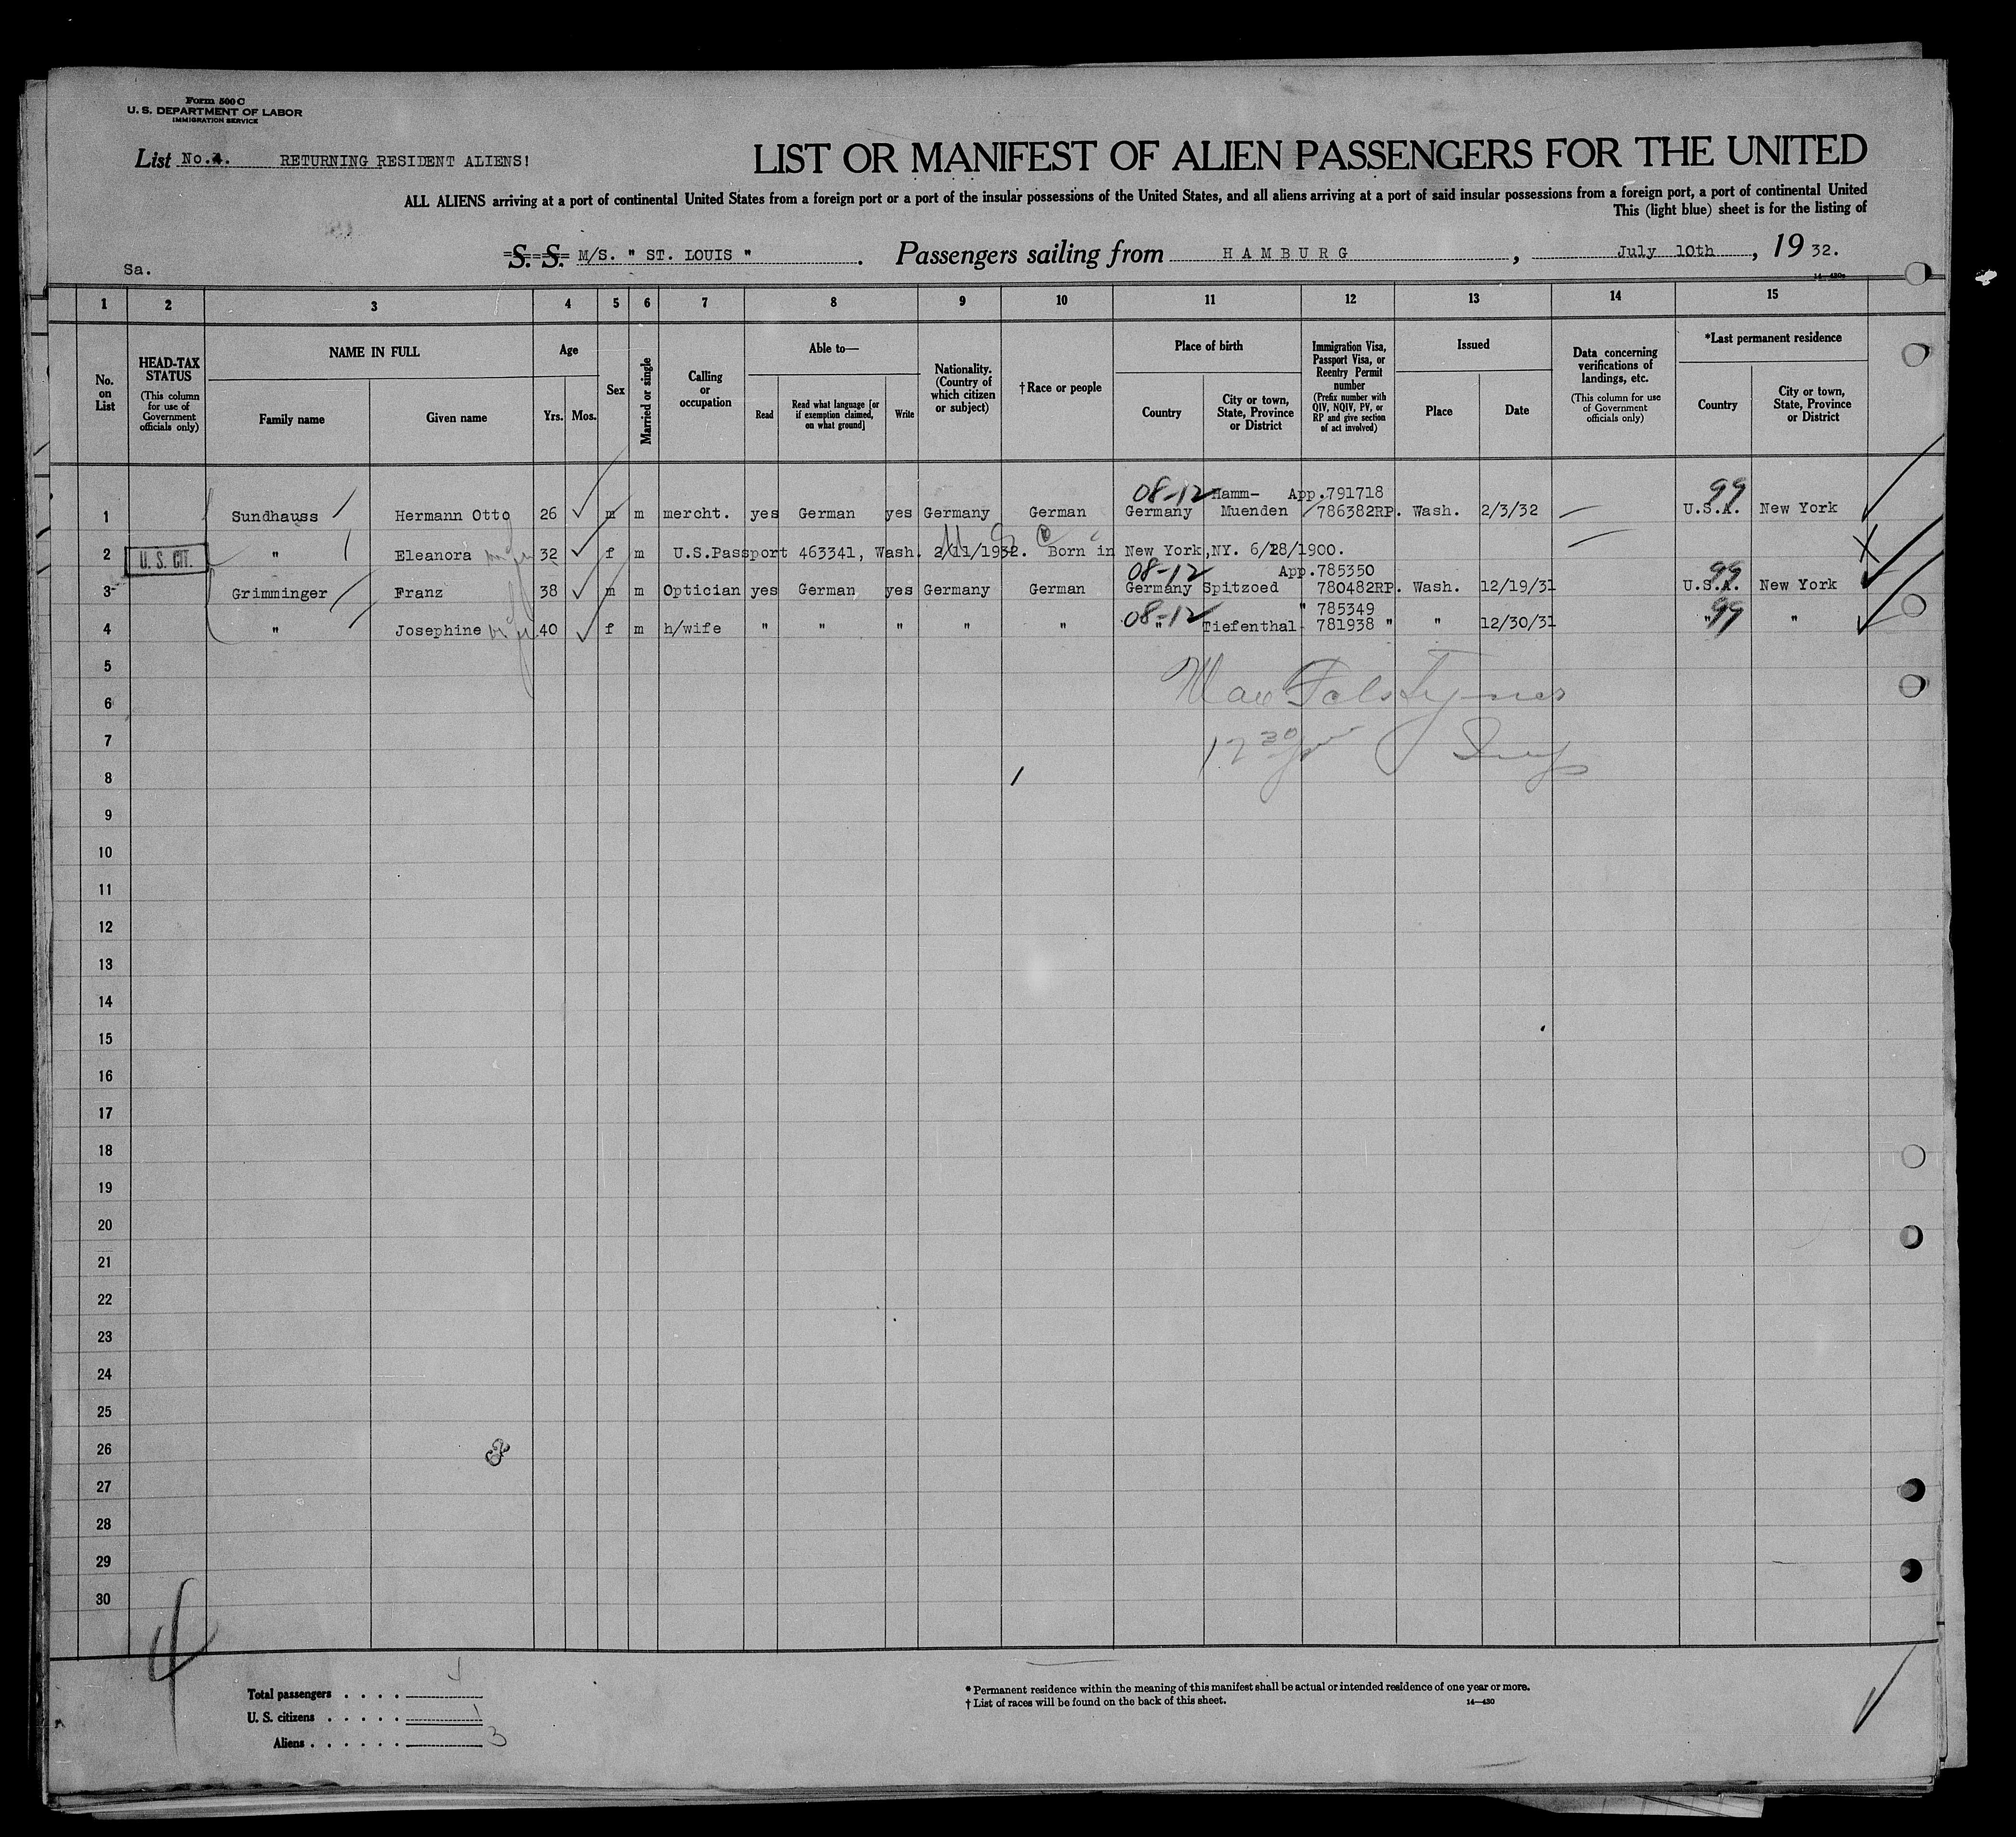 Form 500 C
U. S. DEPARTMENT OF LABOR
IMMIGRATION SERVICE
List No. 4. RETURNING RESIDENT ALIENS!
LIST OR MANIFEST OF ALIEN PASSENGERS FOR THE UNITED
ALL ALIENS arriving at a port of continental United States from a foreign port or a port of the insular possessions of the United States, and all aliens arriving at a port of said insular possessions from a foreign port, a port of continental United
This (light blue) sheet is for the listing of
S. S. M/S. " ST. LOUIS " . Passengers sailing from HAMBURG , July 10th , 19 32.
Sa.
1 2 3 4 5 6 7 8 9 10 11 12 13 14 15
No. on List
HEAD-TAX STATUS
(This column for use of Government officials only)
NAME IN FULL
Family name
Given name
Age
Yrs.
Mos.
Sex
Married or single
Calling or occupation
Able to—
Read
Read what language [or if exemption claimed, on what ground]
Write
Nationality. (Country of which citizen or subject)
† Race or people
Place of birth
Country
City or town, State, Province or District
Immigration Visa, Passport Visa, or Reentry Permit number
(Prefix number with QIV, NQIV, PV, or RP and give section of act involved)
Issued
Place
Date
Data concerning verifications of landings, etc.
(This column for use of Government officials only)
*Last permanent residence
Country
City or town, State, Province or District
08-12 Hamm- App.791718 99
1 Sundhauss Hermann Otto 26 m m mercht. yes German yes Germany German Germany Muenden 786382RP. Wash. 2/3/32 U.S.A. New York
2 U. S. CIT. " Eleanora 32 f m U.S.Passport 463341, Wash. 2/11/1932. Born in New York,NY. 6/28/1900.
08-12 App.785350 99
3 Grimminger Franz 38 m m Optician yes German yes Germany German Germany Spitzoed 780482RP. Wash. 12/19/31 U.S.A. New York
08-12 " 785349 99
4 " Josephine 40 f m h/wife " " " " " " Tiefenthal 781938 " " 12/30/31 " "
5
6
7
8
9
10
11
12
13
14
15
16
17
18
19
20
21
22
23
24
25
26
27
28
29
30
4
Total passengers . . . .
U. S. citizens . . . . . 1
Aliens . . . . . . 3
* Permanent residence within the meaning of this manifest shall be actual or intended residence of one year or more.
† List of races will be found on the back of this sheet. 14—430